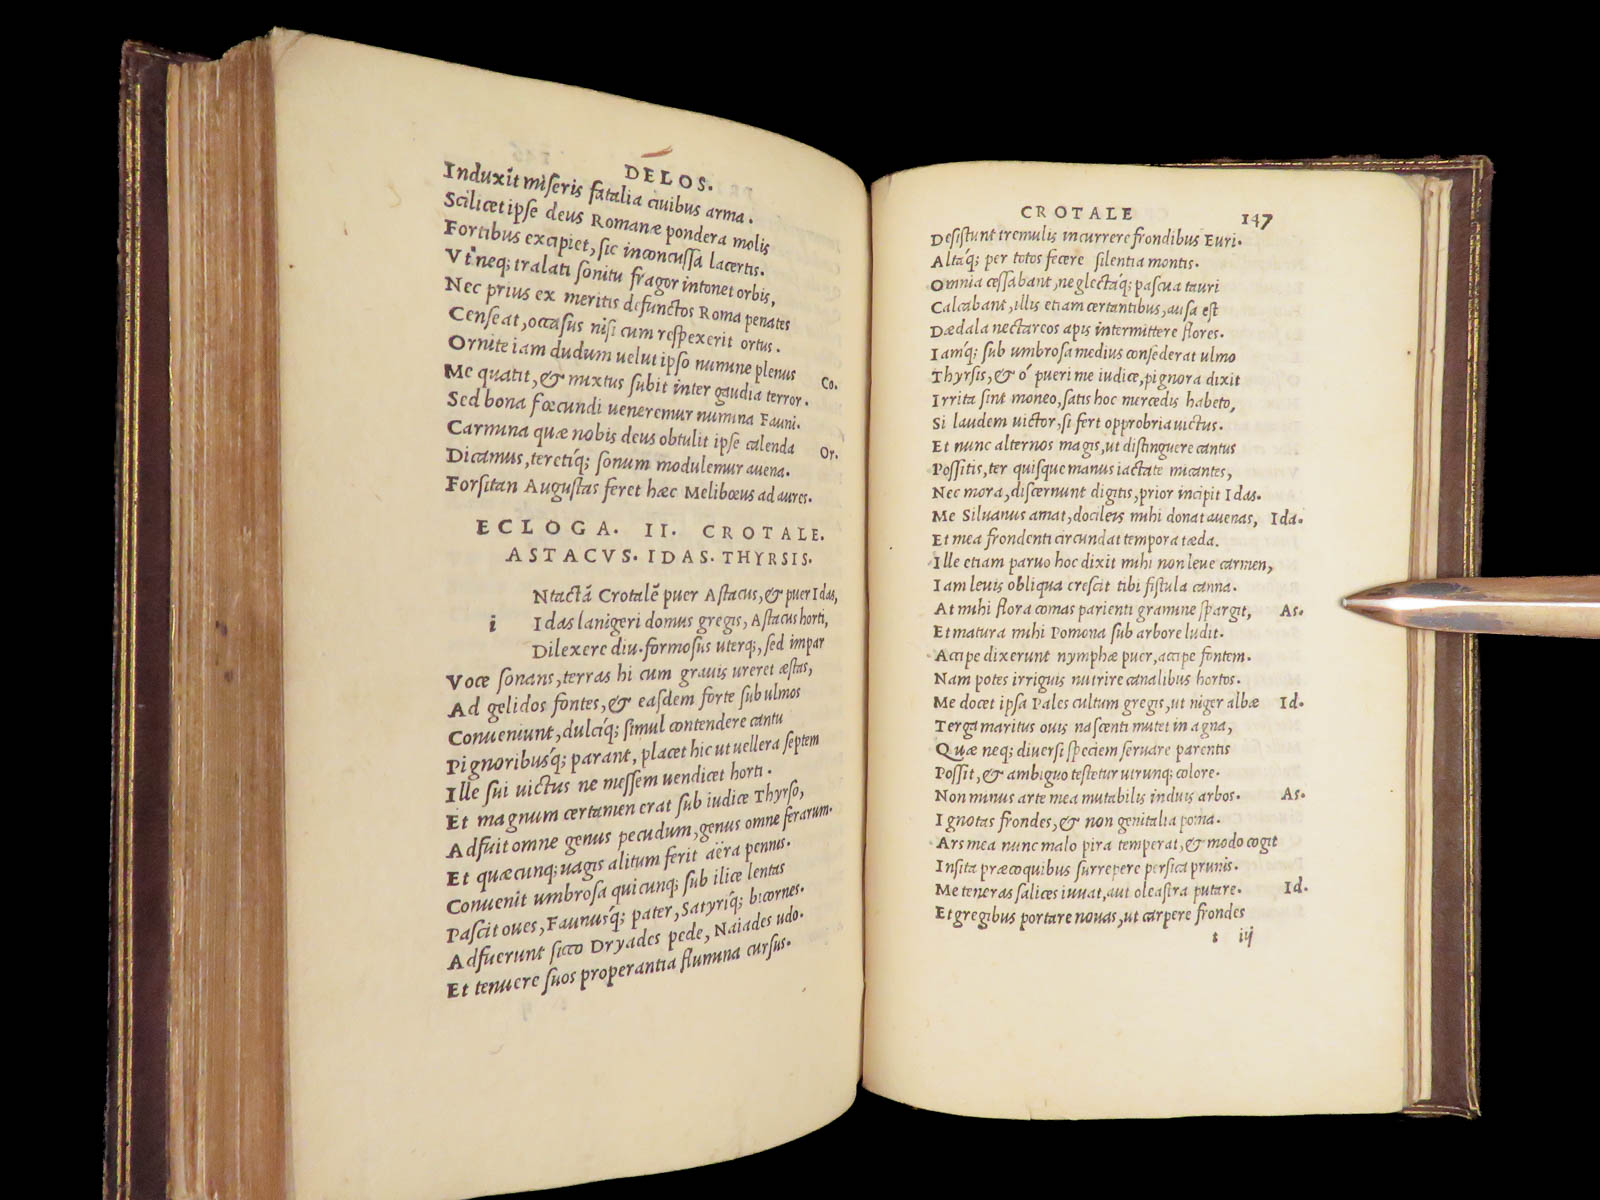 DELOS.
Induxit miseris fatalia civibus arma.
Scilicet ipse deus Romanæ pondera molis
Fortibus excipiet, sic inconcussa lacertis.
Vt neq; tralati sonitu fragor intonet orbis,
Nec prius ex meritis defunctos Roma penates
Censeat, occasus nisi cum respexerit ortus.
Ornite iam dudum uelut ipso numine plenus Co.
Me quatit, & mixtus subit inter gaudia terror.
Sed bona fœcundi ueneremur numina Fauni.
Carmina quæ nobis deus obtulit ipse calenda Or.
Dicamus, teretiq́; sonum modulemur auena.
Forsitan Augustas feret hæc Melibœus ad aures.
ECLOGA. II. CROTALE.
ASTACVS. IDAS. THYRSIS.
i
Ntactã Crotalẽ puer Astacus, & puer Idas,
Idas lanigeri domus gregis, Astacus horti,
Dilexere diu. formosus uterq;, sed impar
Voce sonans, terras hi cum grauis ureret æstas,
Ad gelidos fontes, & easdem forte sub ulmos
Conueniunt, dulciq́; simul contendere cantu
Pignoribusq́; parant, placet hic ut uellera septem
Ille sui uictus ne messem uendicet horti.
Et magnum certamen erat sub iudice Thyrso,
Adfuit omne genus pecudum, genus omne ferarum.
Et quæcunq; uagis alitum ferit aëra pennis.
Conuenit umbrosa quicunq; sub ilice lentas
Pascit oues, Faunusq́; pater, Satyriq́; bicornes.
Adfuerunt sicco Dryades pede, Naiades udo.
Et tenuere suos properantia flumina cursus.
CROTALE 147
Desistunt tremulis incurrere frondibus Euri.
Altaq́; per totos fecere silentia montis.
Omnia cessabant, neglectaq́; pascua tauri
Calcabant, illis etiam certantibus, ausa est
Dædala nectareos apis intermittere flores.
Iamq́; sub umbrosa medius consederat ulmo
Thyrsis, & ó pueri me iudice, pignora dixit
Irrita sint moneo, satis hoc mercedis habeto,
Si laudem uictor, si fert opprobria uictus.
Et nunc alternos magis, ut distinguere cantus
Possitis, ter quisque manus iactate micantes,
Nec mora, discernunt digitis, prior incipit Idas.
Me Siluanus amat, docileis mihi donat auenas, Ida.
Et mea frondenti circundat tempora tæda.
Ille etiam paruo hoc dixit mihi non leue carmen,
Iam leuis obliqua crescit tibi fistula canna.
At mihi flora comas parienti gramine spargit, As.
Et matura mihi Pomona sub arbore ludit.
Accipe dixerunt nymphæ puer, accipe fontem.
Nam potes irriguis nutrire canalibus hortos.
Me docet ipsa Pales cultum gregis, ut niger albæ Id.
Terga maritus ouis nascenti mutet in agna,
Quæ neq; diuersi speciem seruare parentis
Possit, & ambiguo testetur utrunq; colore.
Non minus arte mea mutabilis induis arbos. As.
Ignotas frondes, & non genitalia poma.
Ars mea nunc malo pira temperat, & modo cogit
Insita præcoquibus surrepere persica prunis.
Me teneras salices iuuat, aut oleastra putare. Id.
Et gregibus portare nouas, ut carpere frondes
t iij